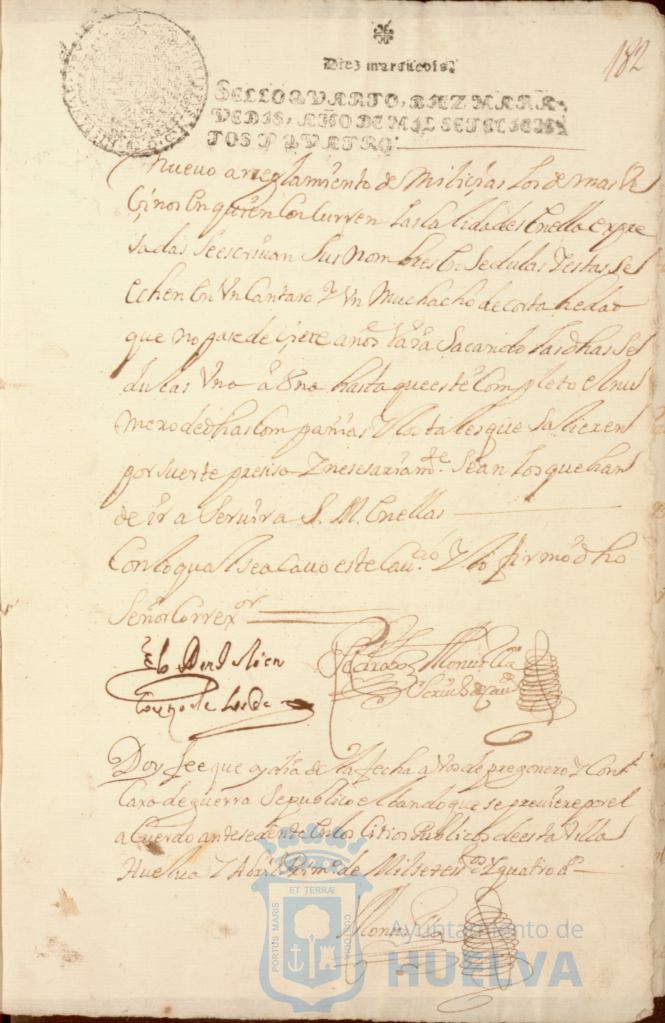 182
Diez maravedis.
SELLO QVARTO, DIEZ MARA-
VEDIS, AÑO DE MIL SETECIEN-
TOS Y QVATRO.
Nuevo arreglamiento de Miliçias Los de mas Ve
Çinos En quien Concurren Las Calidades En ella expre
sadas Se escrivan Sus Nombres En Sedulas Y estas Se
echen En Vn Cantaro Y Vn Muchacho de corta hedad
que no pase de çiete años Vaia Sacando las dhas Se
dulas Vna a Vna hasta que este Completo el nu
mero de dhas Compañias Y los tales que Salieren
por Suerte presisa Y nesesariamte Sean Los que han
de ir a Servir a S. M. En ellas
Con lo qual se acavo este Cavdo Y lo firmo dho
Señor Correxor
Monvilla
Doy fee que oy dia de la fecha a Vos de pregonero Y Con
Caxa de guerra Se publico el bando que se previene por el
aCuerdo antesedente En los Sitios Publicos de esta Villa
Huelva Y Abril Primo de Mil setesientos Y quatro as
Monvilla
PORTUS MARIS ET TERRÆ CUSTODIA
Ayuntamiento de
HUELVA